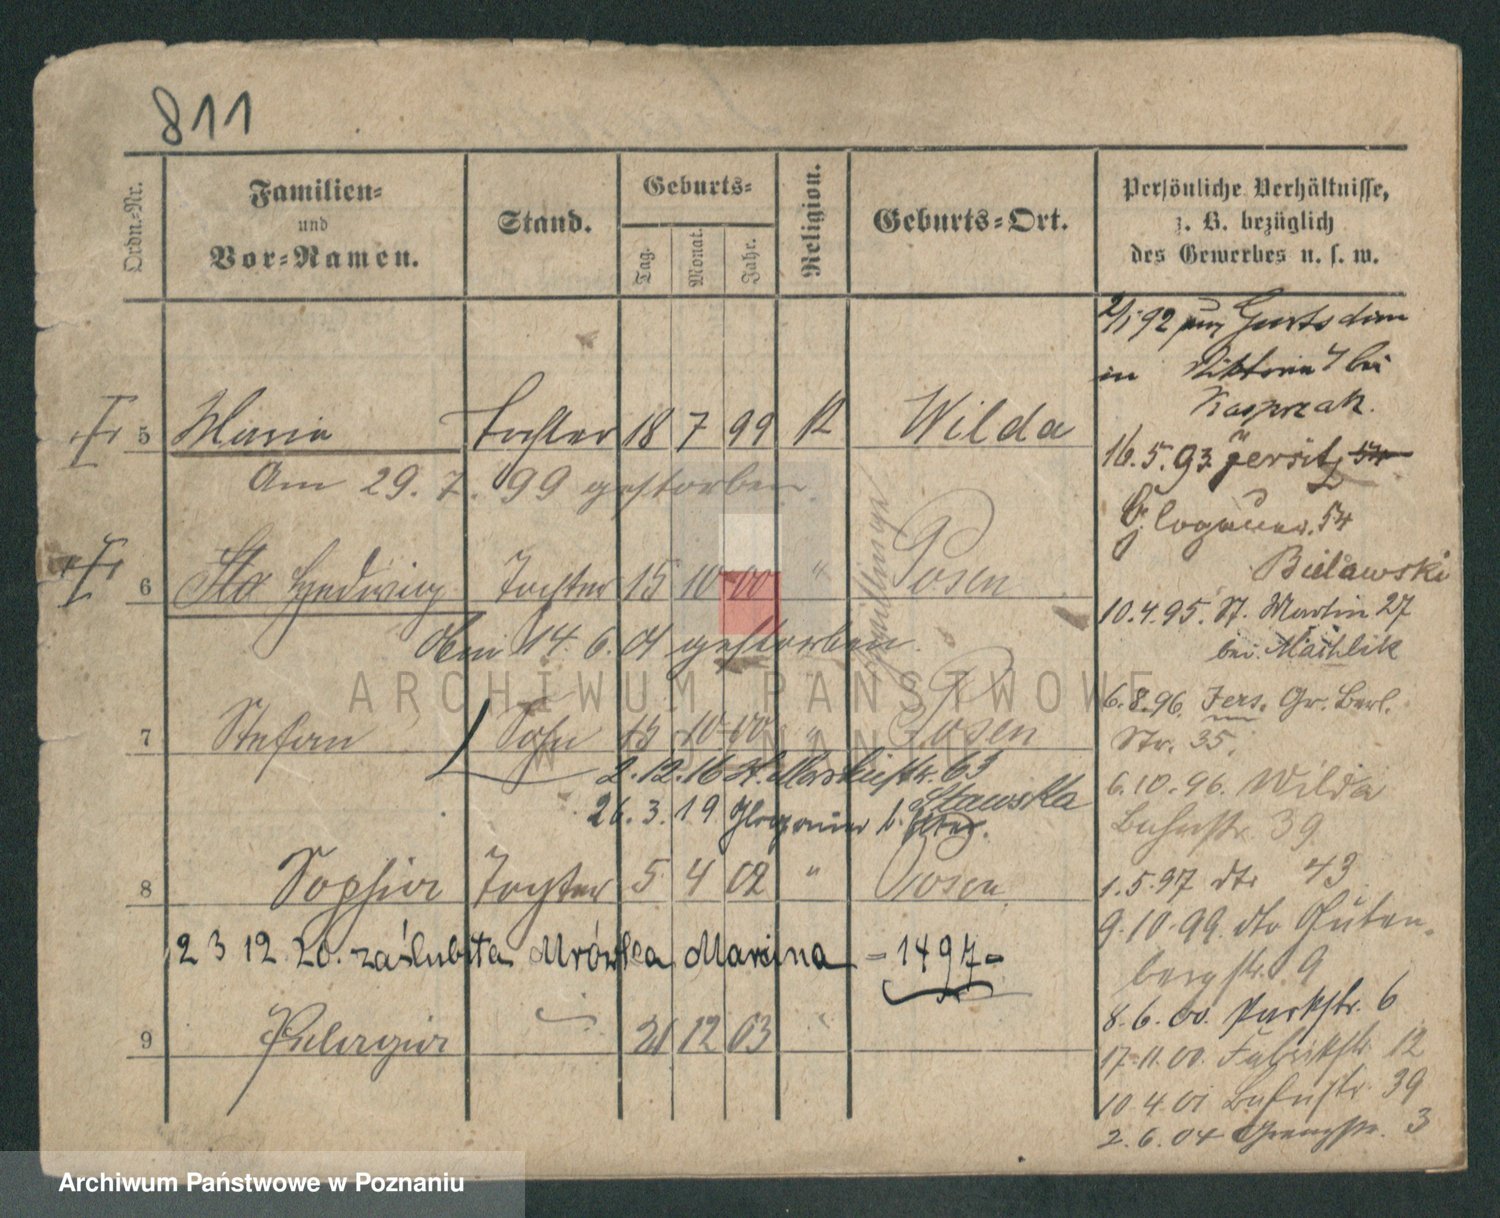 811
Ordn.-Nr.
Familien-
und
Vor-Namen.
Stand.
Geburts-
Tag.
Monat.
Jahr.
Religion.
Geburts-Ort.
Persönliche Verhältnisse,
z. B. bezüglich
des Gewerbes u. s. w.
5 Maria Tochter 18 7 99 R Wilda
Am 29. 7. 99 gestorben.
6 Hedwig Tochter 15 10 00 " Posen
14. 6. 01 gestorben.
Zwillinge
7 Stefan Sohn 15 10 00 " Posen
2.12.16 St. Martinstr. 63
26.3.19 Glogauer b. Stawska
8 Sophia Tochter 5 4 02 " Posen
23 12 20. zaślubiła Mrówka Marcina - 1497 -
9 Pelagia " 21 12 03 "
2/1 92
in Viktoria 4 bei
Kasprzak.
16.5.93 Jersitz 54
Glogauer. 54
Bielawski
10.4.95. St. Martin 27
bei
6.8.96. Jers. Gr. Berl.
Str. 35.
6.10.96. Wilda
Bahnstr. 39
1.5.97 dto 43
9.10.99. dto Guten-
bergstr. 9
8.6.00. Parkstr. 6
17.11.00. Fabrikstr. 12
10.4.01 Bahnstr. 39
2.6.04 3
ARCHIWUM PAŃSTWOWE
W POZNANIU
Archiwum Państwowe w Poznaniu